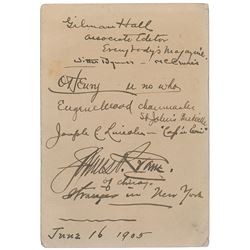 Gilman Hall
Associate Editor
Everybody's Magazine
Witter Bynner - McClure's
O Henry u no who
Eugene Wood chairmaker
Joseph C Lincoln - "Cap'n Eri"
of Chicago
Stranger in New York
June 16 1905